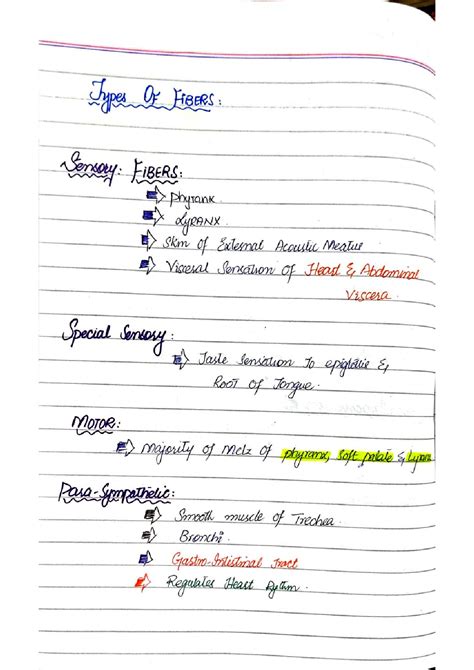 Types Of FIBERS:
Sensory: FIBERS:
phyranx
LYRANX
Skin of External Acoustic Meatue
Visceral Sensation Of Heart & Abdominal
Viscera
Special Sensory:
Taste Sensation To epiglottie &
ROOT Of Tongue.
MOTOR:
Majority of Mclz of phyranx, Soft palate & Lyranx
Para-Sympathetic:
Smooth muscle of Trechea
Bronchi
Gastro-Intistinal Tract
Regulates Heart Rythm.